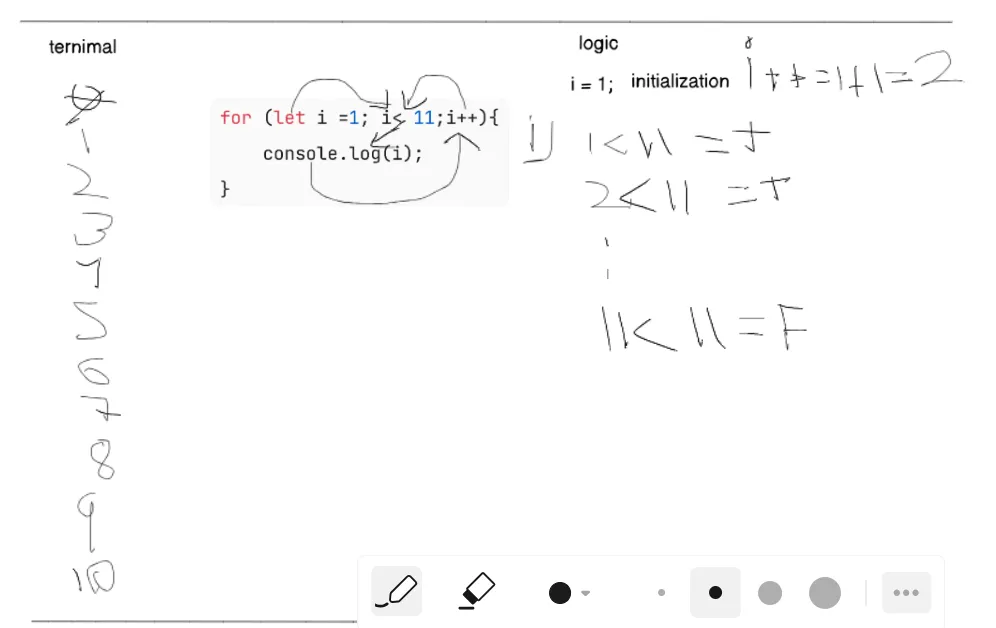 ternimal
0
1
2
3
4
5
6
7
8
9
10
for (let i =1; i< 11;i++){
console.log(i);
}
logic
i = 1; initialization
1++=1+1=2
1) 1<11 = T
2<11 = T
11<11=F